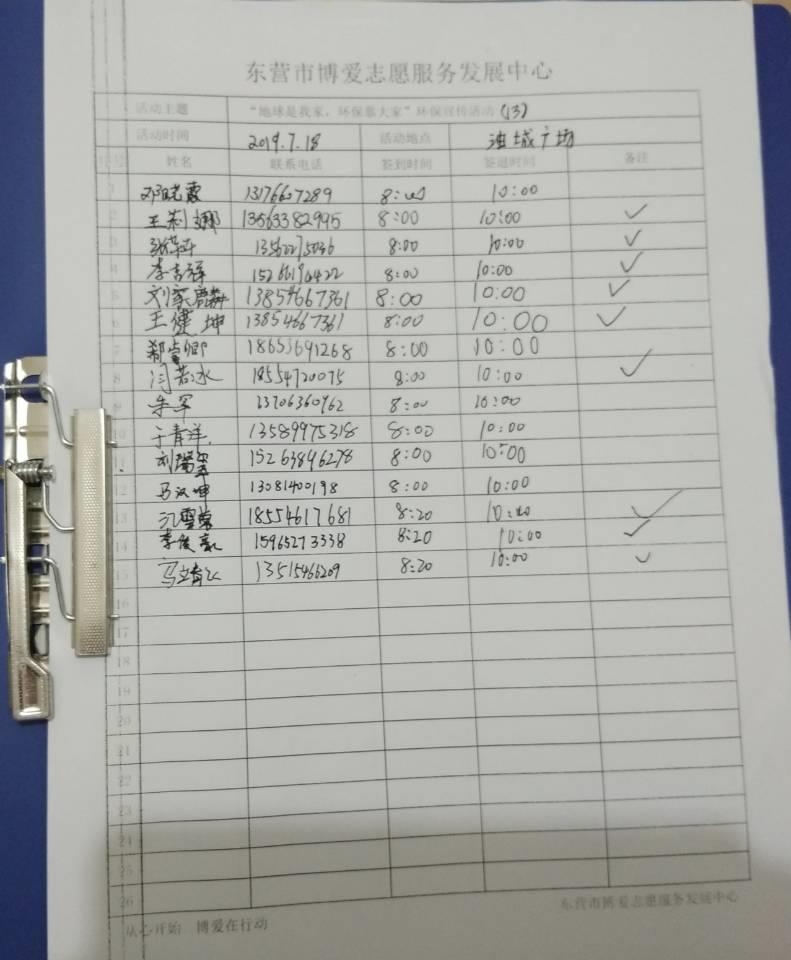 东营市博爱志愿服务发展中心
活动主题 “地球是我家，环保靠大家”环保宣传活动 (13)
活动时间 2019.7.18 活动地点 油城广场
姓名 联系电话 签到时间 签退时间 备注
1 邓晓霞 13176607289 8:00 10:00
2 王荆娜 13563382995 8:00 10:00 ✓
3 8:00 10:00 ✓
4 李吉祥 8:00 10:00 ✓
5 刘家麒 13854667361 8:00 10:00 ✓
6 王健坤 13854667361 8:00 10:00 ✓
7 18653691268 8:00 10:00
8 闫若冰 18554720075 8:00 10:00 ✓
9 朱军 13706360962 8:00 10:00
10 于青洋 13589975318 8:00 10:00
11 15263896278 8:00 10:00
12 马汉坤 13081400198 8:00 10:00
13 18554617681 8:20 10:00 ✓
14 李俊豪 15965273338 8:20 10:00 ✓
15 13515466209 8:20 10:00 ✓
16
17
18
19
20
21
22
23
24
25
26
东营市博爱志愿服务发展中心
从心开始 博爱在行动